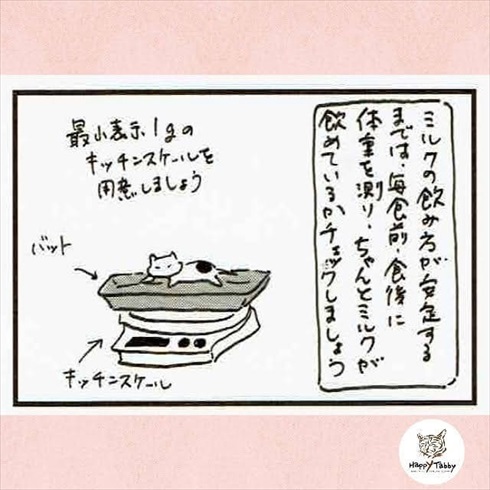 ミルクの飲み方が安定する
までは、毎食前・食後に
体重を測り、ちゃんとミルクが
飲めているかチェックしましょう
最小表示1gの
キッチンスケールを
用意しましょう
バット
キッチンスケール
Happy Tabby